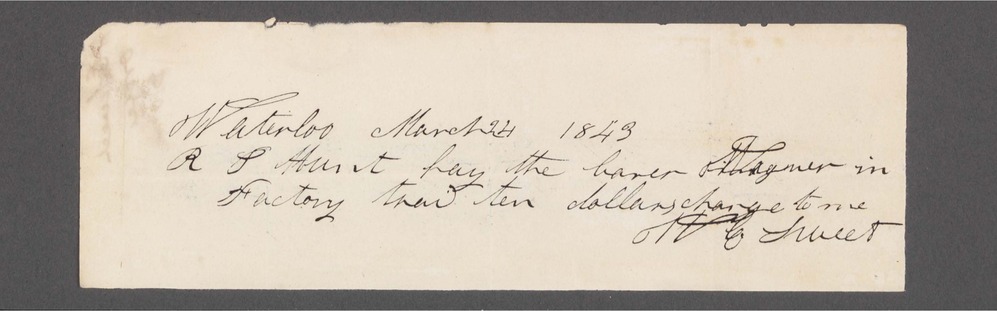 Waterloo March 24 1843
R P Hunt pay the barer Wagner in
Factory traid ten dollars charge to me
W C Sweet